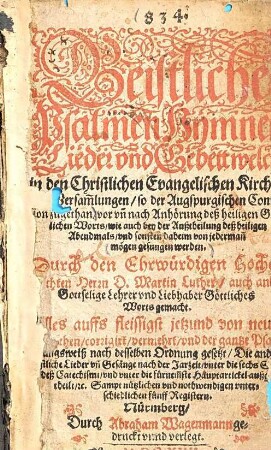 (834.
Geistliche
Psalmen Hymne
Lieder vnd Gebett welc
in den Christlichen Evangelischen Kirch
Versam̃lungen / so der Augspurgischen Con
zugethan / vor vñ nach Anhörung deß heiligen G
lichen Worts / wie auch bey der Außtheilung deß heiligen
Abendmals / vnd sonsten daheim von jederman
mögen gesungen werden.
Durch den Ehrwürdigen Hoche
Herrn D. Martin Luther / auch and
Gottselige Lehrer vnd Liebhaber Göttliches
Worts gemacht.
auffs fleissigst jetzund von neu
corrigirt / vermehrt / vnd der gantze Psa
nach desselben Ordnung gesetzt / Die and
Lieder vñ Gesänge nach der Jarzeit / vnter die sechs S
deß Catechismi / vnd vnter die fürnembste Häuptartickel auß
Sampt nützlichen vnd nothwendigen vnter
schiedlichen fünff Registern.
Nürmberg /
Durch Abraham Wagenmann ge
druckt vnnd verlegt.